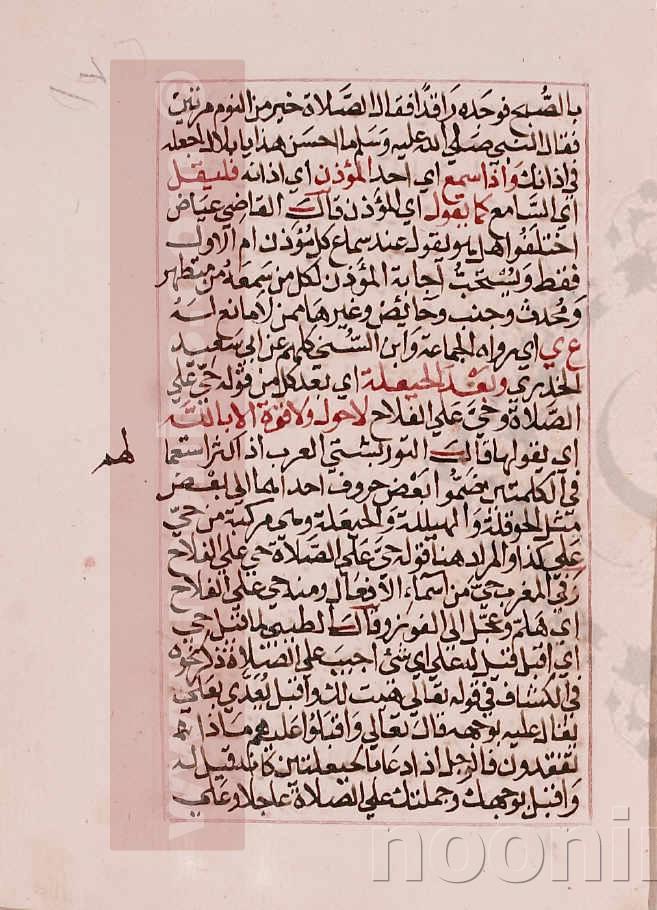 بالصبح فوجده راقدا فقال الصلاة خير من النوم مرتين
فقال النبي صلي الله عليه وسلم ما احسن هذا يا بلال اجعله
في اذانك واذا سمع اي احد المؤذن اي اذانه فليقل
اي السامع كما يقول اي المؤذن قال القاضي عياض
اختلفوا هل يقوله عند سماع كل مؤذن ام الاول
فقط ويستحب اجابة المؤذن لكل من سمعه من متطهر
ومحدث وجنب وحايض وغيرها ممن لا مانع له
ع ي اي رواه الجماعة وابن السني كلهم عن ابي سعيد
الخدري وبعد الحيعلة اي بعد كل من قوله حي علي
الصلاة وحي علي الفلاح لا حول ولا قوة الا بالله
اي يقولها قال التوربشتي العرب اذا كثر استعما
لهم
في الكلمتين ضموا بعض حروف احدايهما الي بعض
مثل الحوقلة والهيللة والحيعلة وهي مركبة من حي
علي كذا والمراد هنا قوله حي علي الصلاة حي علي الفلاح
وفي المغرب حي من اسماء الافعال ومنه حي علي الفلاح
اي هلم وعجل الي الفوز وقال الطيبي لما قيل حي
اي اقبل قيل له علي اي شئ اجيب علي الصلاة ذكر نحوه
في الكشاف في قوله تعالي هيت لك واقبل يعدي بعلي
يقال عليه بوجهه قال تعالي واقبلوا عليهم ماذا
تفقدون فالرجل اذا دعا بالحيعلتين كانه قيل له
واقبل بوجهك وجملتك علي الصلاة عاجلا وعلي
noonin